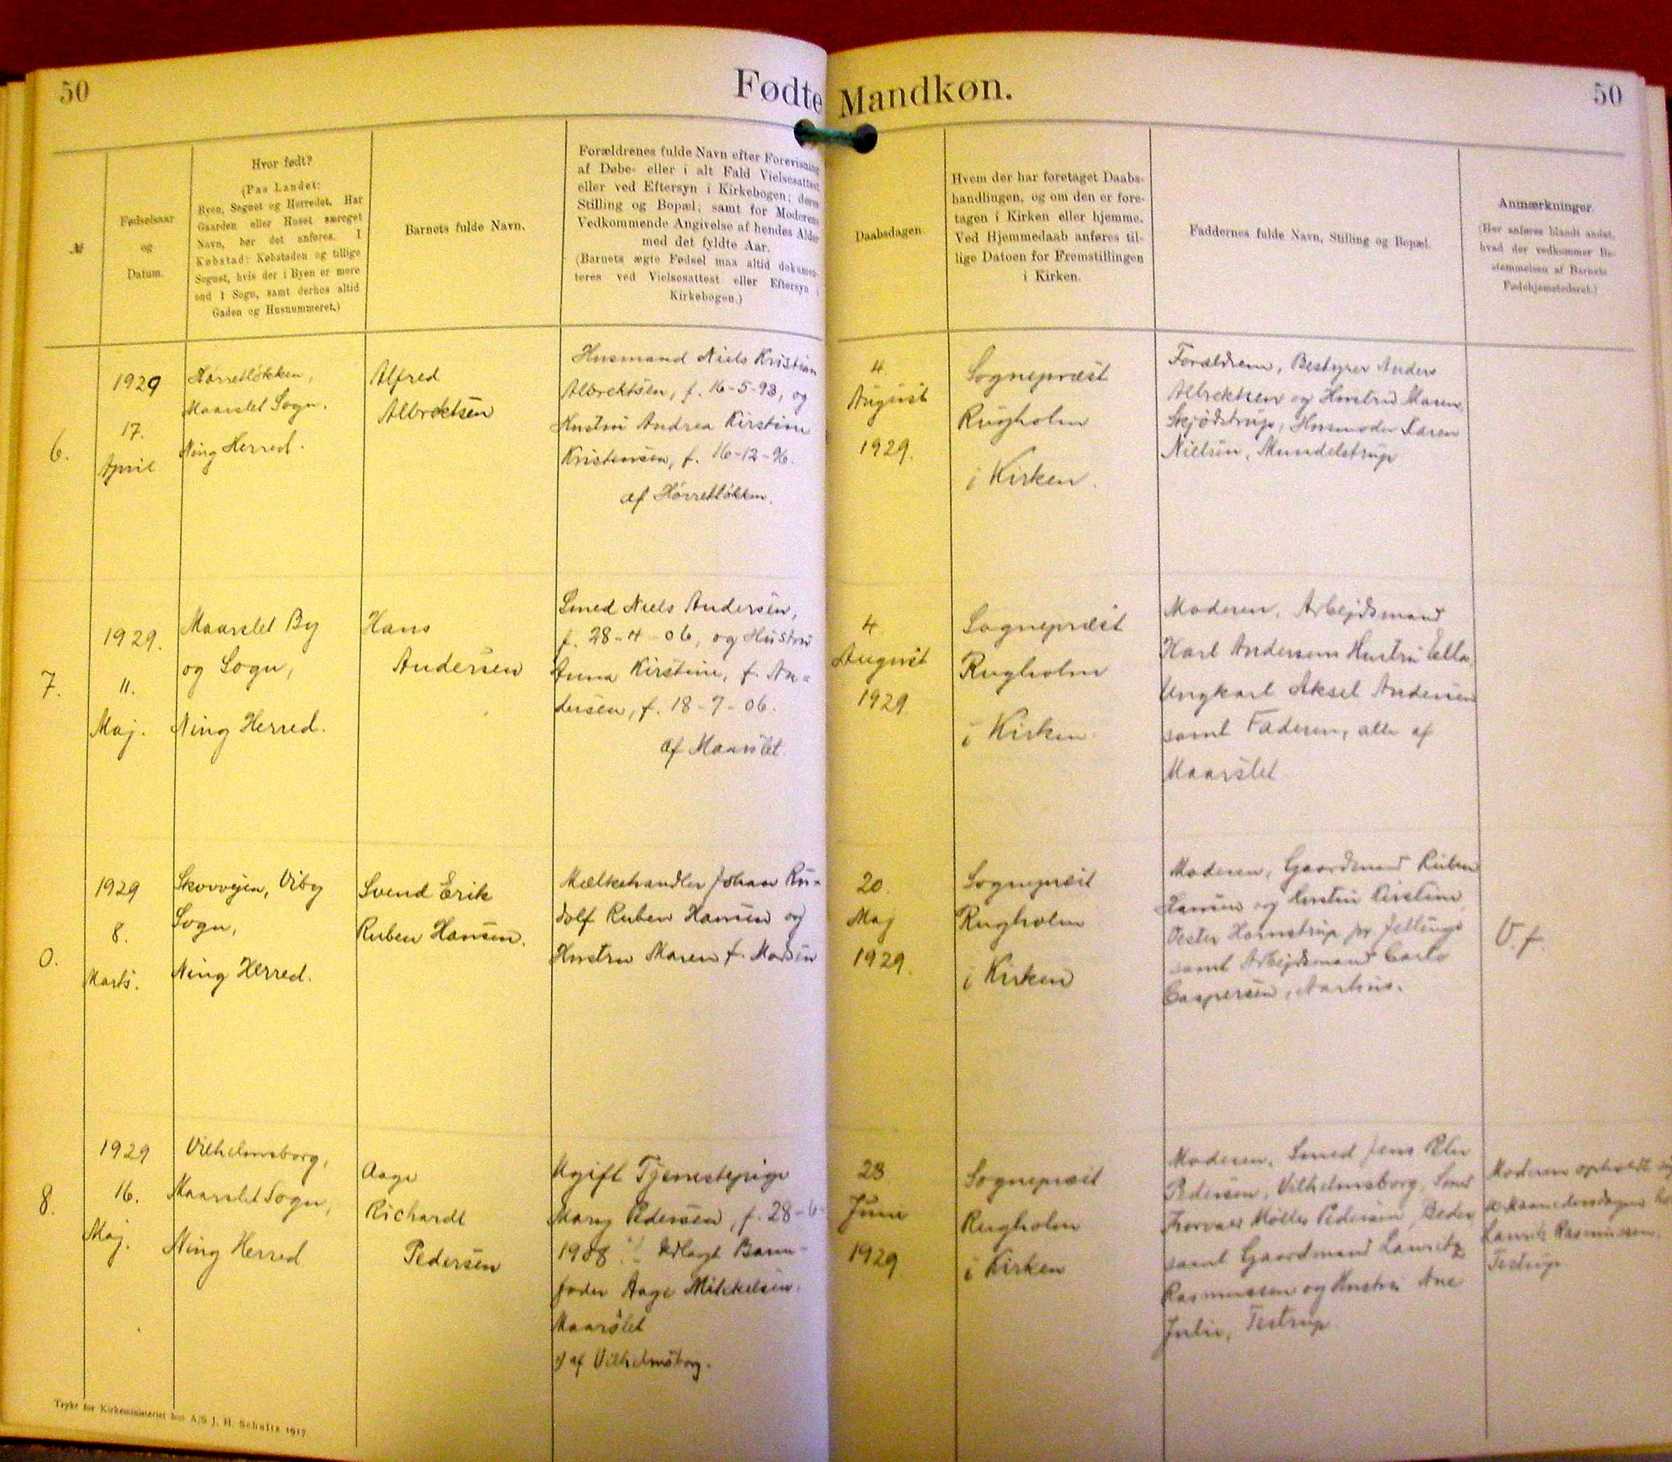 50
Fødte
Mandkøn.
50
№
Fødselsaar
og
Datum.
Hvor født?
(Paa Landet:
Byen, Sognet og Herredet. Har
Gaarden eller Huset særeget
Navn, bør det anføres. I
Købstad: Købstaden og tillige
Sognet, hvis der i Byen er mere
end 1 Sogn, samt derhos altid
Gaden og Husnummeret.)
Barnets fulde Navn.
Forældrenes fulde Navn efter Forevisning
af Døbe- eller i alt Fald Vielsesattest
eller ved Eftersyn i Kirkebogen; deres
Stilling og Bopæl; samt for Moderens
Vedkommende Angivelse af hendes Alder
med det fyldte Aar.
(Barnets ægte Fødsel maa altid dokumen-
teres ved Vielsesattest eller Eftersyn i
Kirkebogen.)
Daabsdagen.
Hvem der har foretaget Daabs-
handlingen, og om den er fore-
tagen i Kirken eller hjemme.
Ved Hjemmedaab anføres til-
lige Datoen for Fremstillingen
i Kirken.
Faddernes fulde Navn, Stilling og Bopæl.
Anmærkninger.
(Her anføres blandt andet,
hvad der vedkommer Be-
stemmelsen af Barnets
Fødehjemstedsret.)
6.
1929
17.
April
Hørretløkken,
Maarslet Sogn.
Ning Herred.
Alfred
Albrektsen
Husmand Niels Kristian
Albrektsen, f. 16-5-93, og
Hustru Andrea Kirstine
Kristensen, f. 16-12-96.
af Hørretløkken.
4.
August
1929.
Sognepræst
Rugholm
i Kirken.
Forældrene, Bestyrer Anders
Albrektsen og Hustru Maren
Skjødstrup, Husmoder Karen
Nielsen, Mundelstrup
7.
1929.
11.
Maj.
Maarslet By
og Sogn,
Ning Herred.
Hans
Andersen
Smed Niels Andersen,
f. 28-4-06, og Hustru
Anna Kirstine, f. An-
dersen, f. 18-7-06.
af Maarslet.
4.
August
1929.
Sognepræst
Rugholm
i Kirken.
Moderen, Arbejdsmand
Karl Andersens Hustru Ella,
Ungkarl Aksel Andersen
samt Faderen, alle af
Maarslet
0.
1929
8.
Marts.
Skovvejen, Viby
Sogn,
Ning Herred.
Svend Erik
Ruben Hansen.
Mælkehandler Johan Ru-
dolf Ruben Hansen og
Hustru Maren f. Madsen
20.
Maj
1929.
Sognepræst
Rugholm
i Kirken
Moderen, Gaardmand Ruben
Hansen og Hustru Kirstine,
Vester Hornstrup pr Jellinge
samt Arbejdsmand Carlo
Caspersen, Aarhus.
V. f.
8.
1929
16.
Maj.
Vilhelmsborg,
Maarslet Sogn,
Ning Herred
Aage
Richardt
Pedersen
Ugift Tjenestepige
Mary Pedersen, f. 28-6-
1908. Udlagt Barne-
fader Aage Mikkelsen,
Maarslet
af Vilhelmsborg.
23.
Juni
1929
Sognepræst
Rugholm
i Kirken
Moderen, Smed Jens Peter
Pedersen, Vilhelmsborg, Smed
Thorvald Møller Pedersen, Beder
samt Gaardmand Lauritz
Rasmussen og Hustru Ane
Julie, Testrup.
Moderen opholdt sig
10 Maanedersdagen hos
Laurits Rasmussen.
Testrup
Trykt for Kirkeministeriet hos A/S J. H. Schultz 1917